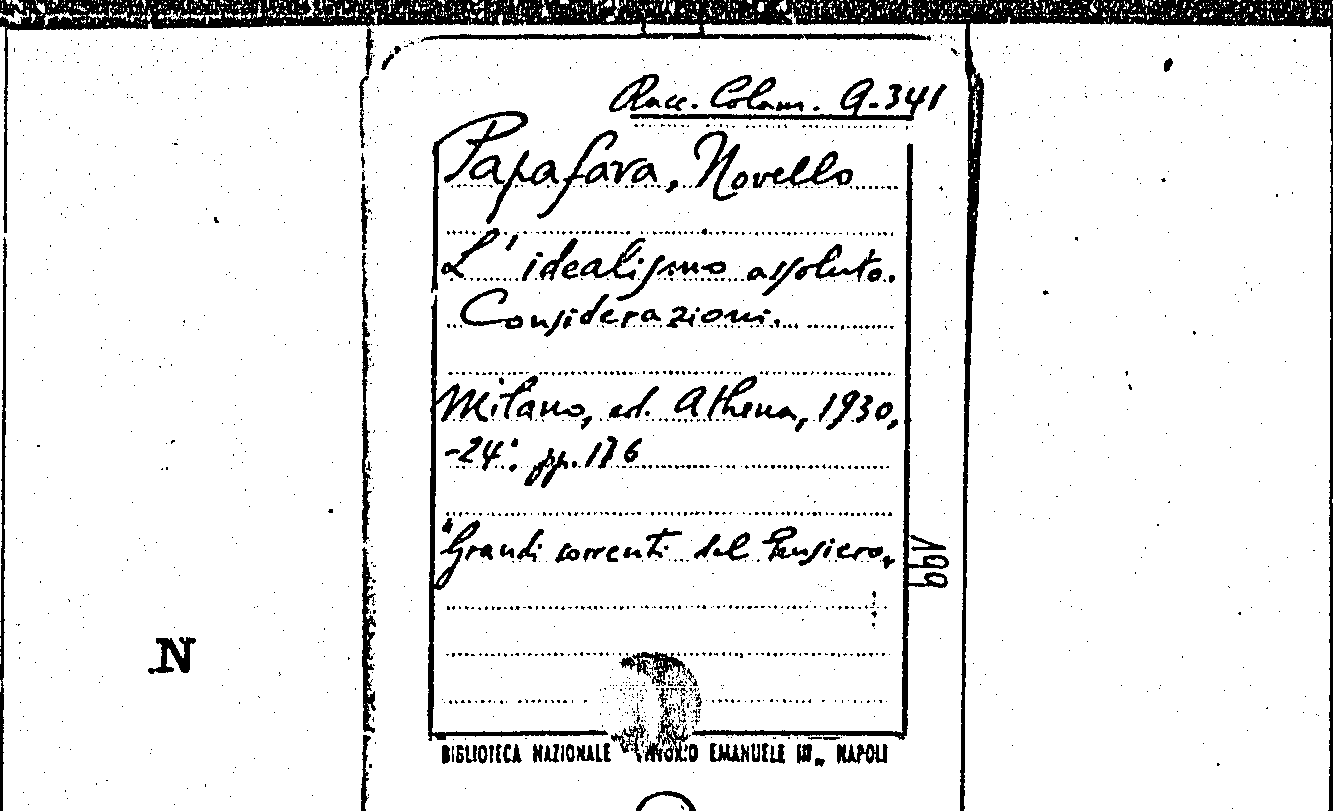 Racc. Colam. A-341
Papafava, Novello
L'idealismo assoluto.
Considerazioni.
Milano, ed. Athena, 1930,
-24°. pp. 176
"Grandi correnti del Pensiero„
N
BIBLIOTECA NAZIONALE VITTORIO EMANUELE III„ NAPOLI